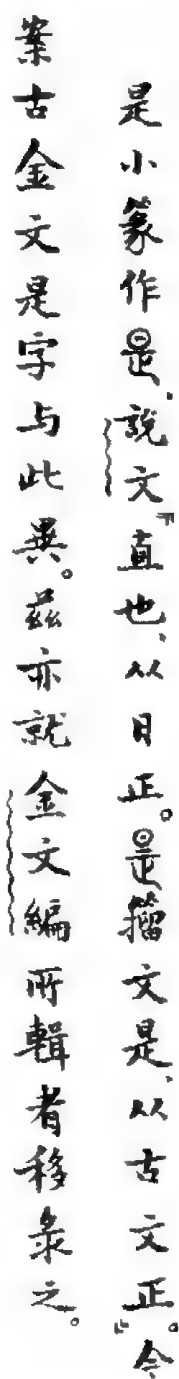 是小篆作昰，說文『直也，从日正。昰籀文是，从古文正。』今
案古金文是字与此異。茲亦就金文編所輯者移彔之。